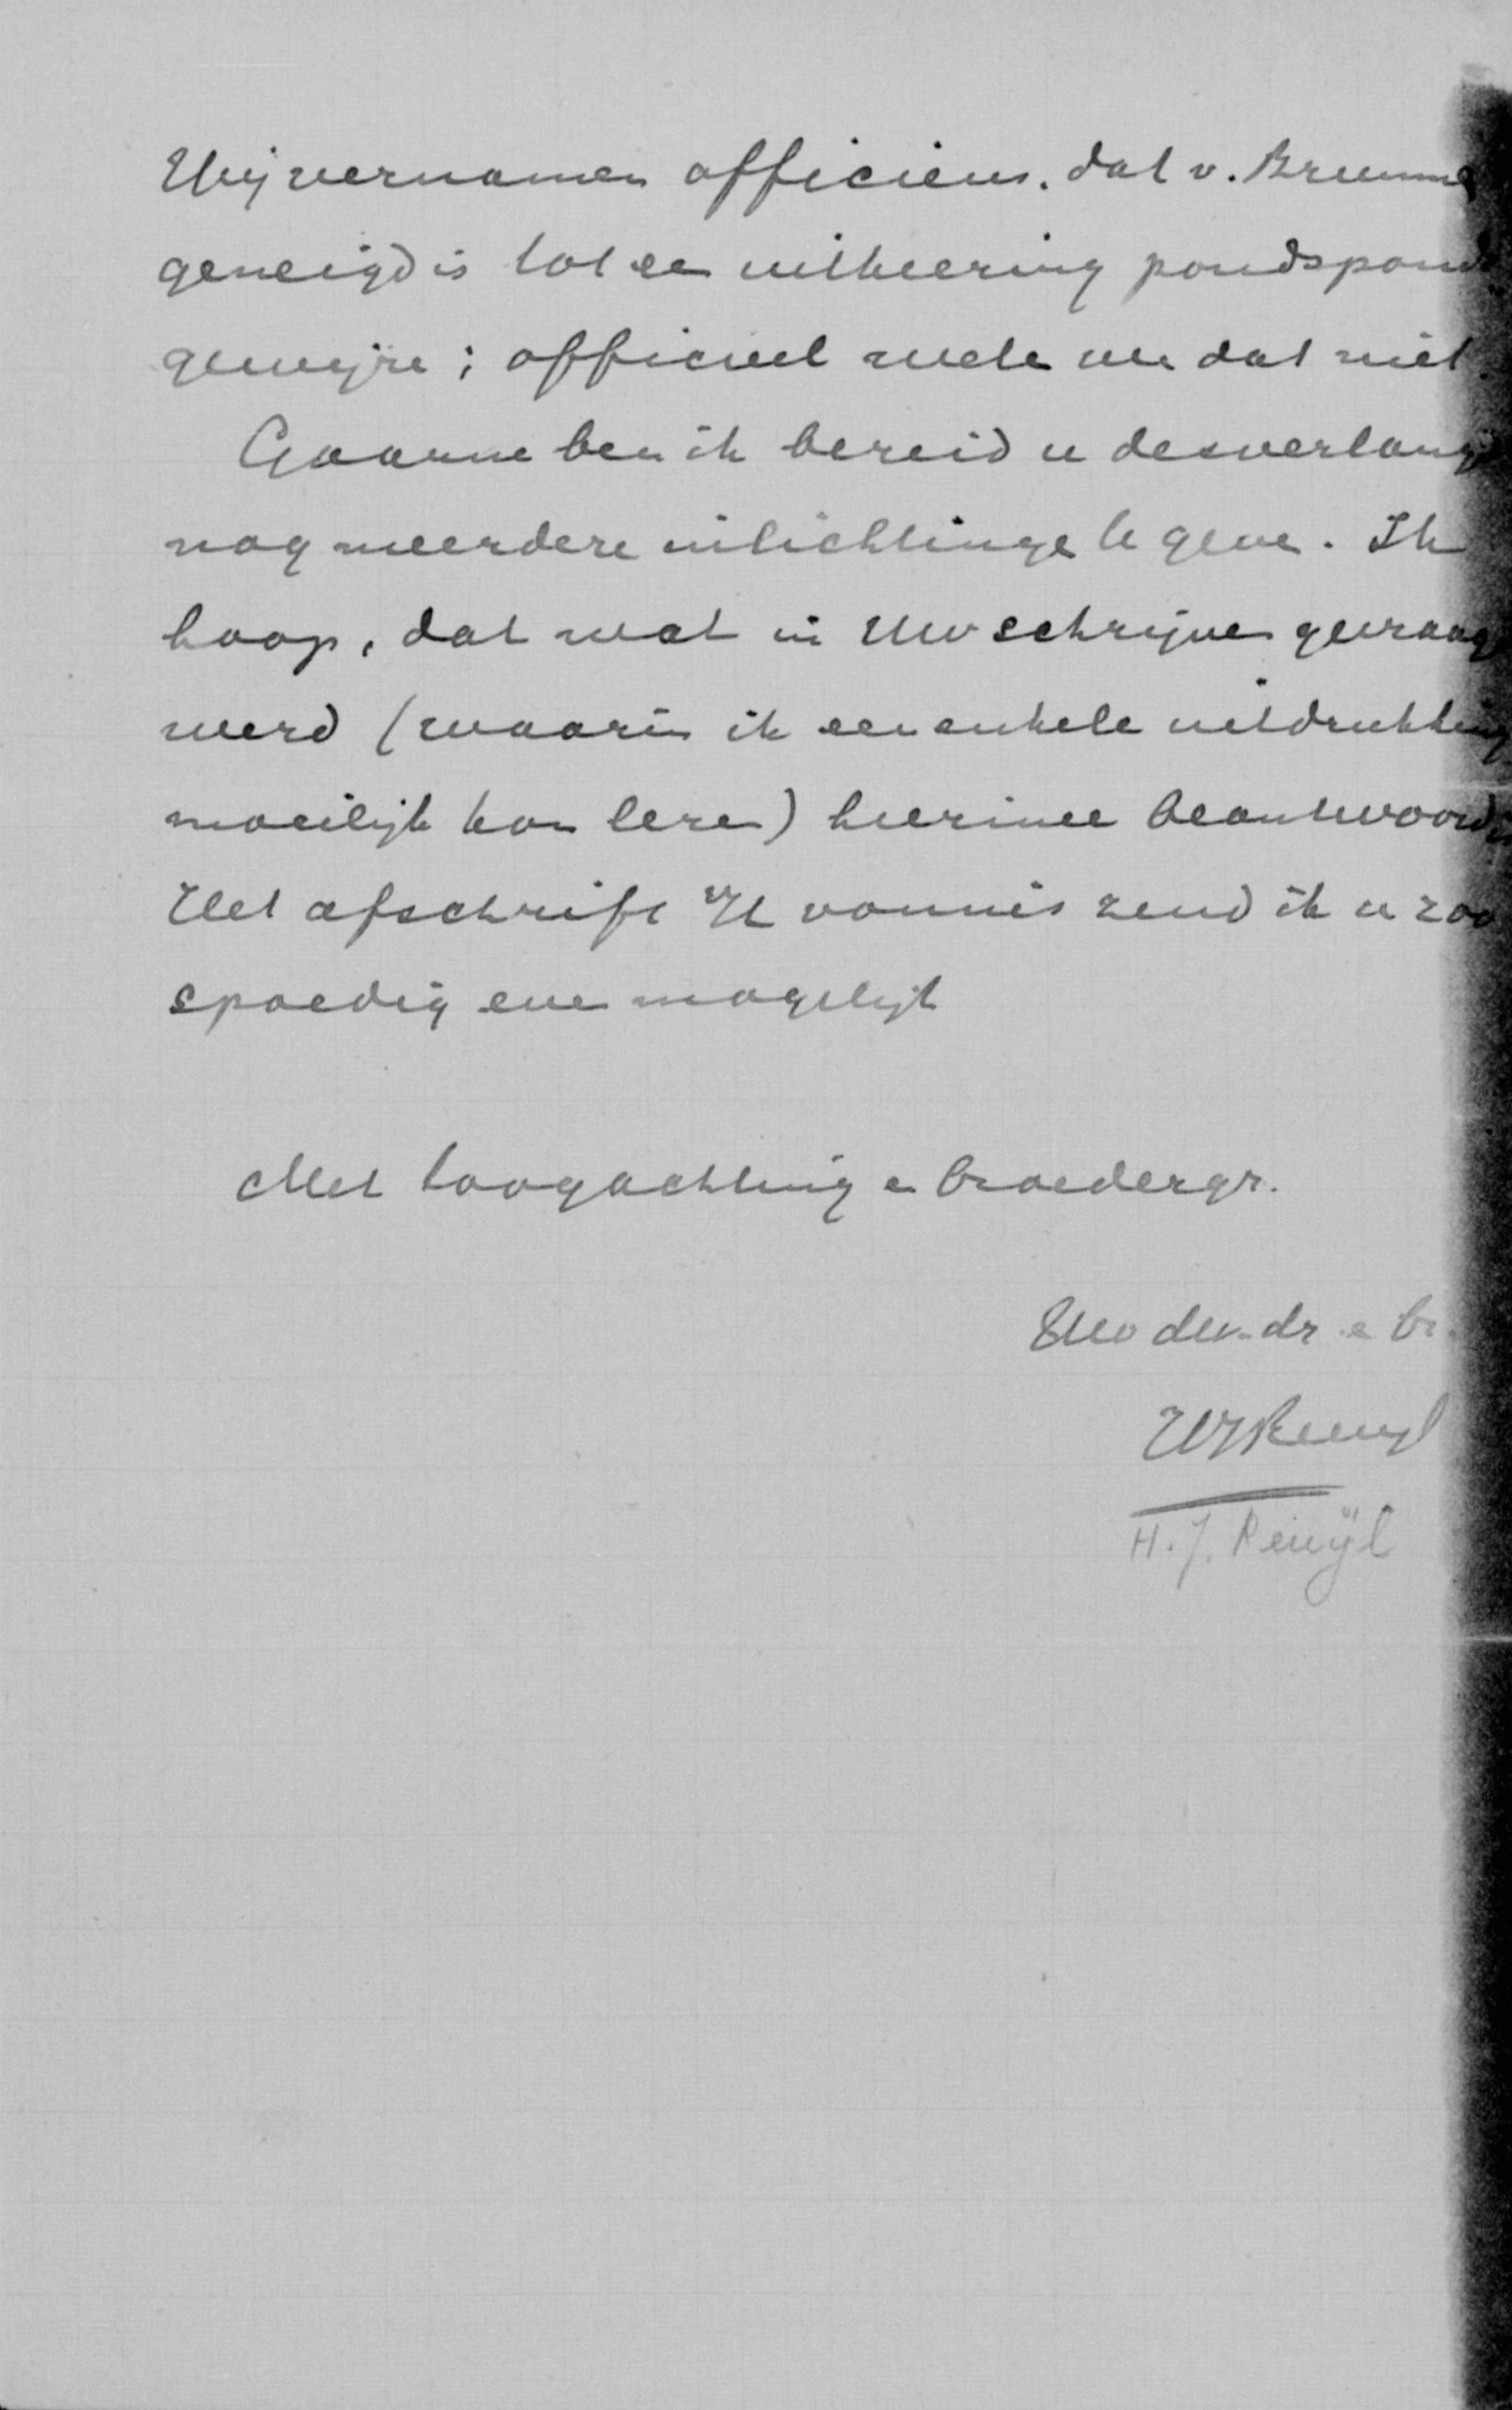 Wij vernamen officieus, dat v. Brumme
geneigd is tot een uitkeering pondspond
gewijze; officieel weten we dat niet.
Gaarne ben ik bereid u desverlangd
nog meerdere inlichtingen te geven. Ik
hoop, dat wat in Uw schrijven gevraagd
werd (waarin ik een enkele uitdrukking
moeilijk kon lezen) hiermee beantwoord is
Het afschrift v/h vonnis zend ik u zoo
spoedig even mogelijk
Met hoogachting en broedergr.
Uw dw. dr. en br.
HJ
H. J.